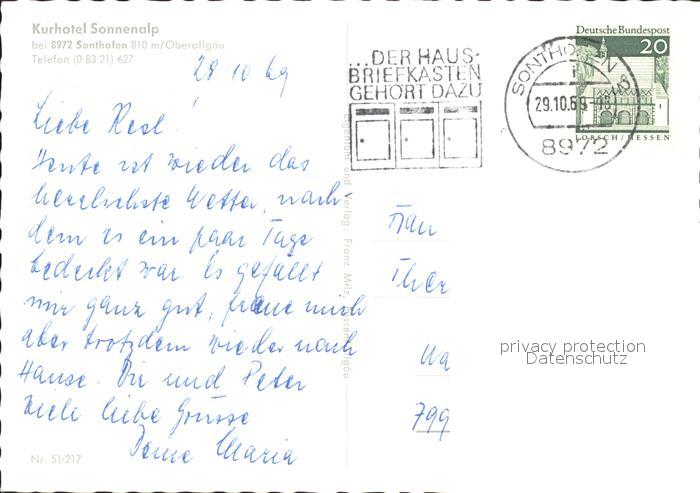 Kurhotel Sonnenalp
bei 8972 Sonthofen 810 m/Oberallgäu
Telefon (0 83 21) 627
28 10 69
Liebe Resl!
Heute ist wieder das
herrlichste Wetter, nach
dem es ein paar Tage
bedeckt war. Es gefällt
mir ganz gut, freue mich
aber trotzdem wieder nach
Hause. Dir und Peter
viele liebe Grüsse
Deine Maria
Nr. 51/217
Eigentum und Verlag Franz Milz,
...DER HAUS-
BRIEFKASTEN
GEHÖRT DAZU
SONTHOFEN
29.10.69
8972
Deutsche Bundespost
20
LORSCH/HESSEN
Frau
Ther
Wa
799
privacy protection
Datenschutz